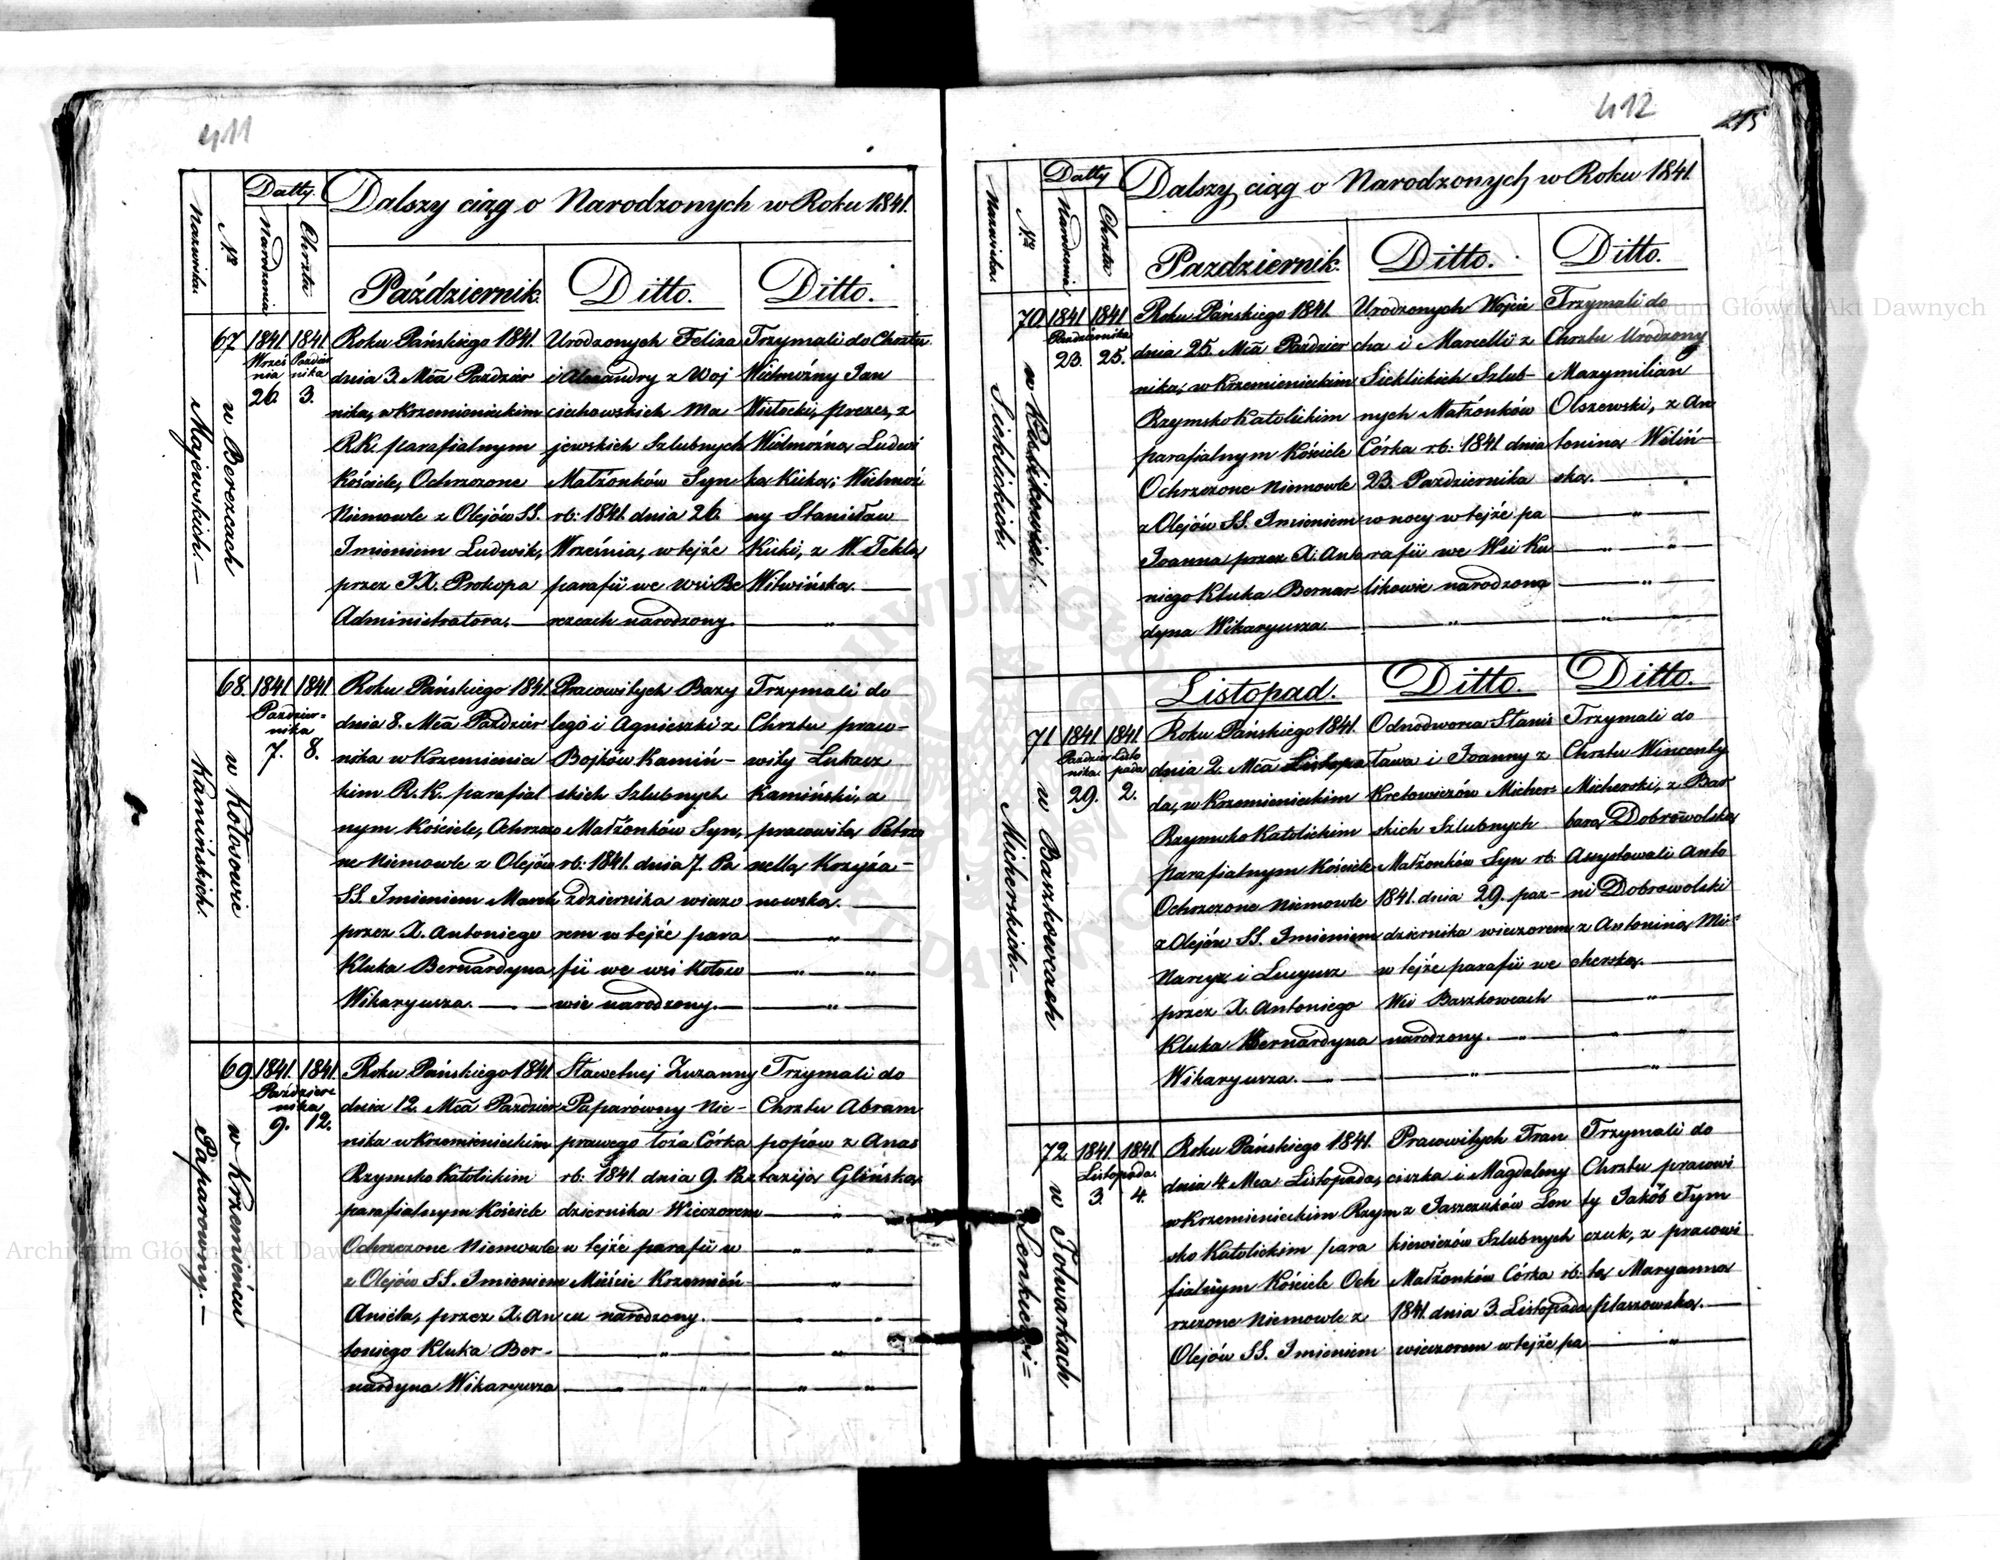 411
Dalszy ciąg o Narodzonych w Roku 1841.
Datty.
Nazwiska
Nro
Narodzenia
Chrztu
Październik.
Ditto.
Ditto.
67
w Berezcach
Majewskich.—
1841 1841.
Wrześ
nia
26.
Paździer
nika
3.
Roku Pańskiego 1841.
dnia 3. Mca Paździer
nika, w Krzemienieckim
R.K. parafialnym
Kościele, Ochrzczone
Niemowle z Olejów SS.
Imieniem Ludwik,
przez JX. Prokopa
Administratora.—
Urodzonych Felixa
i Alexandry z Woj
ciechowskich Ma
jewskich Szlubnych
Małżonków Syn
rb: 1841. dnia 26.
Września, w tejże
parafii we Wsi Be
rezcach narodzony.
Trzymali do Chrztu
Wielmożny Jan
Wisłocki, prezes, z
Wielmożną Ludwi
ką Kicką; Wielmoż
ny Stanisław
Kicki, z W. Teklą
Witwińską.—
68.
w Kołosowie
Kamińskich.
1841. 1841.
Paździer=
nika
7. 8.
Roku Pańskiego 1841.
dnia 8. Mca Paździer
nika w Krzemieniec
kim R.K. parafial
nym Kościele, Ochrzczo
ne Niemowle z Olejów
SS. Imieniem Marek
przez X. Antoniego
Kluka Bernardyna,
Wikaryusza.—
Pracowitych Bazy
lego i Agnieszki z
Bojków Kamiń–
skich Szlubnych
Małżonków Syn,
rb: 1841. dnia 7. Pa
zdziernika wieczo
rem w tejże para
fii we wsi Kołoso
wie narodzony.—
Trzymali do
Chrztu praco–
wity Łukasz
Kamiński, z
pracowitą Petro
nellą Krzyża–
nowską.—
69.
w Krzemieńcu
Paparowny.—
1841. 1841.
Paździer
nika
9. 12.
Roku Pańskiego 1841.
dnia 12. Mca Paździer
nika w Krzemienieckim
Rzymsko Katolickim
parafialnym Kościele
Ochrzczone Niemowle
z Olejów SS. Imieniem
Aniela, przez X. An
toniego Kluka Ber–
nardyna Wikaryusza
Sławetnej Zuzanny
Paparówny Nie–
prawego łoża Córka
rb: 1841 dnia 9. Pa
dziernika Wieczorem
w tejże parafii w
Mieście Krzemień–
cu narodzony.—
Trzymali do
Chrztu Abram
popiów z Anas
taziją Glińską
412
215
Dalszy ciąg o Narodzonych w Roku 1841.
Datty
Nazwiska
Nro
Narodzenia
Chrztu
Pazdziernik.
Ditto.
Ditto.
70.
Sieklickich.
1841 1841.
Pazdziernika
23. 25.
Roku Pańskiego 1841.
dnia 25. Mca Pazdzier
nika, w Krzemienieckim
Rzymsko Katolickim
parafialnym Kościele
Ochrzczone Niemowle
z Olejów SS. Imieniem
Joanna przez X. Anto
niego Kluka Bernar–
dyna Wikaryusza.
Urodzonych Wojcie
cha i Marcelli z
Sieklickich Szlub–
nych Małżonków
Córka rb: 1841 dnia
23. Pazdziernika
w nocy w tejże pa
rafii we Wsi Ku
likowie narodzona
Trzymali do
Chrztu Urodzony
Maxymilian
Olszewski, z An
toniną Wiliń–
ską.—
Listopad.
Ditto.
Ditto.
71
w Baszkowcach
Micherskich.—
1841. 1841.
Paździer
nika.
29.
Listo
pada
2.
Roku Pańskiego 1841.
dnia 2. Mca Listopa
da, w Krzemienieckim
Rzymsko Katolickim
parafialnym Kościele
Ochrzczone Niemowle
z Olejów SS. Imieniem
Narcyz i Lucyusz
przez X. Antoniego
Kluka Bernardyna
Wikaryusza.—
Odnodworca Stanis
ława i Joanny z
Kretowiczów Micher
skich Szlubnych
Małżonków Syn rb:
1841. dnia 29. paz–
dziernika wieczorem
w tejże parafii we
Wsi Baszkowcach
narodzony.—
Trzymali do
Chrztu Wincenty
Micherski, z Bar
barą Dobrowolską
Assystowali Anto
ni Dobrowolski
z Antoniną Mi
cherską.—
72.
w Folwarkach
Lenkiewi=
1841. 1841.
Listopada.
3. 4.
Roku Pańskiego 1841.
dnia 4. Mca Listopada,
w Krzemienieckim Rzym
sko Katolickim para
fialnym Kościele Och
rzczone Niemowle z
Olejów SS. Imieniem
Pracowitych Fran
ciszka i Magdaleny
z Jaszczuków Len
kiewiczów Szlubnych
Małżonków Córka rb:
1841. dnia 3. Listopada
wieczorem w tejże pa
Trzymali do
Chrztu pracowi
ty Jakób Tym
czuk, z pracowi
tą Maryanną
ptaszowską.—
Archiwum Główne Akt Dawnych
Archiwum Główne Akt Dawnych